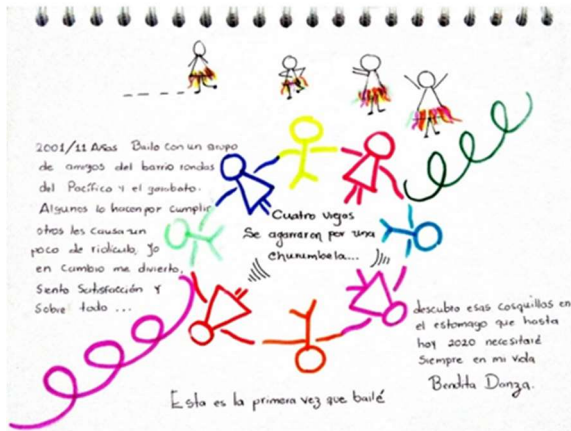 2001/11 Años Bailo con un grupo
de amigos del barrio rondas
del Pacífico y el garabato.
Algunos lo hacen por cumplir
otros les causa un
poco de ridículo, Yo
en Cambio me divierto,
Siento Satisfacción Y
Sobre todo ...
Cuatro viejas
Se agarraron por una
churumbela...
descubro esas cosquillas en
el estomago que hasta
hoy 2020 necesitaré
Siempre en mi vida
Bendita Danza.
Esta es la primera vez que bailé